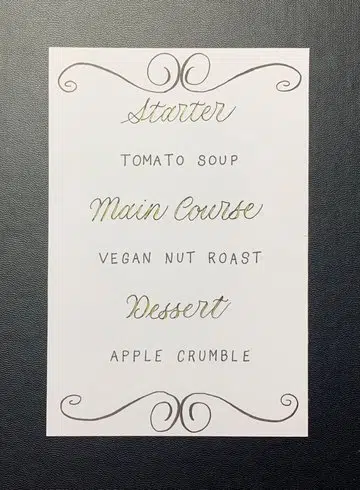 Starter
TOMATO SOUP
Main Course
VEGAN NUT ROAST
Dessert
APPLE CRUMBLE